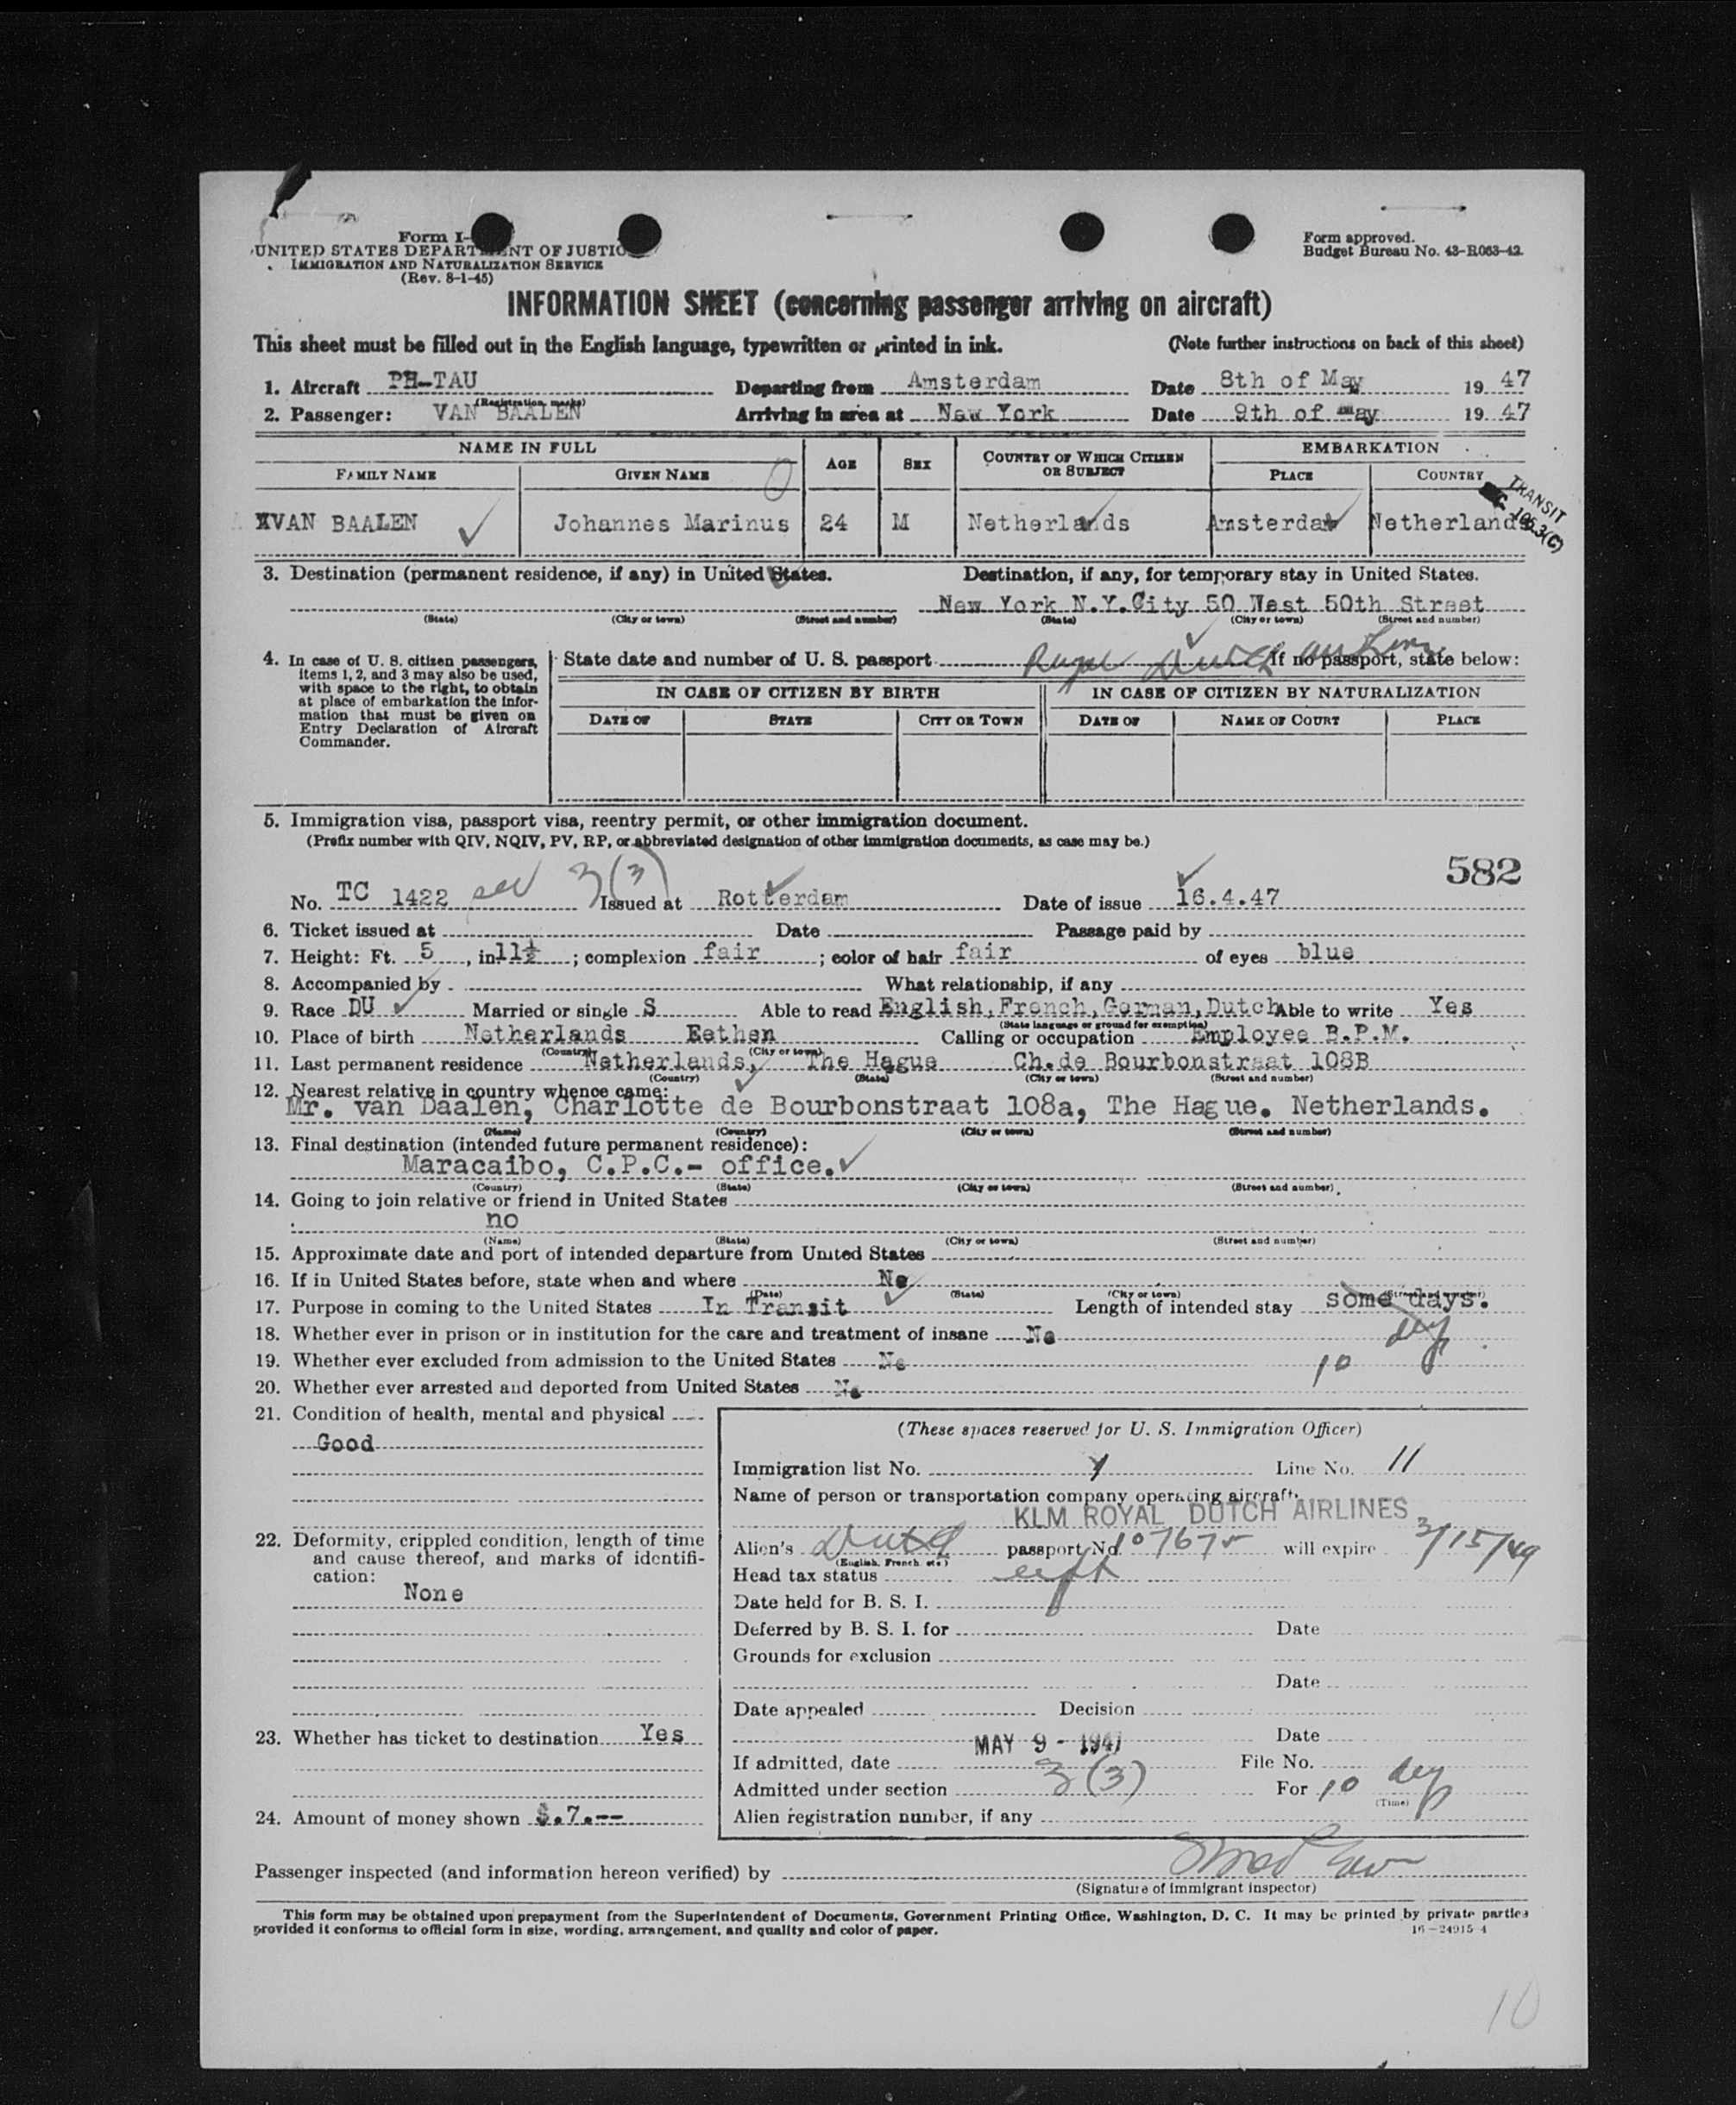 Form I-
UNITED STATES DEPARTMENT OF JUSTIC
IMMIGRATION AND NATURALIZATION SERVICE
(Rev. 8-1-45)
Form approved.
Budget Bureau No. 43-R063-42.
INFORMATION SHEET (concerning passenger arriving on aircraft)
This sheet must be filled out in the English language, typewritten or printed in ink. (Note further instructions on back of this sheet)
1. Aircraft PH-TAU Departing from Amsterdam Date 8th of May 19 47
(Registration marks)
2. Passenger: VAN BAALEN Arriving in area at New York Date 9th of May 19 47
NAME IN FULL AGE SEX COUNTRY OF WHICH CITIZEN OR SUBJECT EMBARKATION
FAMILY NAME GIVEN NAME PLACE COUNTRY
TRANSIT
VAN BAALEN Johannes Marinus 24 M Netherlands Amsterdam Netherlands
3. Destination (permanent residence, if any) in United States. Destination, if any, for temporary stay in United States.
New York N.Y.City 50 West 50th Street
(State) (City or town) (Street and number) (State) (City or town) (Street and number)
Royal Dutch
4. In case of U. S. citizen passengers, items 1, 2, and 3 may also be used, with space to the right, to obtain at place of embarkation the information that must be given on Entry Declaration of Aircraft Commander.
State date and number of U. S. passport If no passport, state below:
IN CASE OF CITIZEN BY BIRTH IN CASE OF CITIZEN BY NATURALIZATION
DATE OF STATE CITY OR TOWN DATE OF NAME OF COURT PLACE
5. Immigration visa, passport visa, reentry permit, or other immigration document.
(Prefix number with QIV, NQIV, PV, RP, or abbreviated designation of other immigration documents, as case may be.)
582
No. TC 1422 3(3) Issued at Rotterdam Date of issue 16.4.47
6. Ticket issued at Date Passage paid by
7. Height: Ft. 5, in. 11½; complexion fair; color of hair fair of eyes blue
8. Accompanied by What relationship, if any
9. Race DU Married or single S Able to read English, French, German, Dutch Able to write Yes
(State language or ground for exemption)
10. Place of birth Netherlands Eethen Calling or occupation Employee B.P.M.
(Country) (City or town)
11. Last permanent residence Netherlands, The Hague Ch.de Bourbonstraat 108B
(Country) (State) (City or town) (Street and number)
12. Nearest relative in country whence came:
Mr. van Daalen, Charlotte de Bourbonstraat 108a, The Hague. Netherlands.
(Name) (Country) (City or town) (Street and number)
13. Final destination (intended future permanent residence):
Maracaibo, C.P.C.- office.
(Country) (State) (City or town) (Street and number)
14. Going to join relative or friend in United States
no
(Name) (State) (City or town) (Street and number)
15. Approximate date and port of intended departure from United States
16. If in United States before, state when and where No
(Date) (State) (City or town) (Street and number)
17. Purpose in coming to the United States In Transit Length of intended stay some days.
18. Whether ever in prison or in institution for the care and treatment of insane No
19. Whether ever excluded from admission to the United States No 10
20. Whether ever arrested and deported from United States No
21. Condition of health, mental and physical
Good
22. Deformity, crippled condition, length of time and cause thereof, and marks of identification:
None
23. Whether has ticket to destination Yes
24. Amount of money shown $.7.--
(These spaces reserved for U. S. Immigration Officer)
Immigration list No. Line No. 11
Name of person or transportation company operating aircraft
KLM ROYAL DUTCH AIRLINES
Alien's Dutch passport No. 107675 will expire 3/15/49
(English, French, etc.)
Head tax status
Date held for B. S. I.
Deferred by B. S. I. for Date
Grounds for exclusion
Date
Date appealed Decision
Date
MAY 9 - 1947
If admitted, date File No.
Admitted under section 3(3) For 10
(Time)
Alien registration number, if any
Passenger inspected (and information hereon verified) by
(Signature of immigrant inspector)
This form may be obtained upon prepayment from the Superintendent of Documents, Government Printing Office, Washington, D. C. It may be printed by private parties
provided it conforms to official form in size, wording, arrangement, and quality and color of paper.
16-24915-4
10